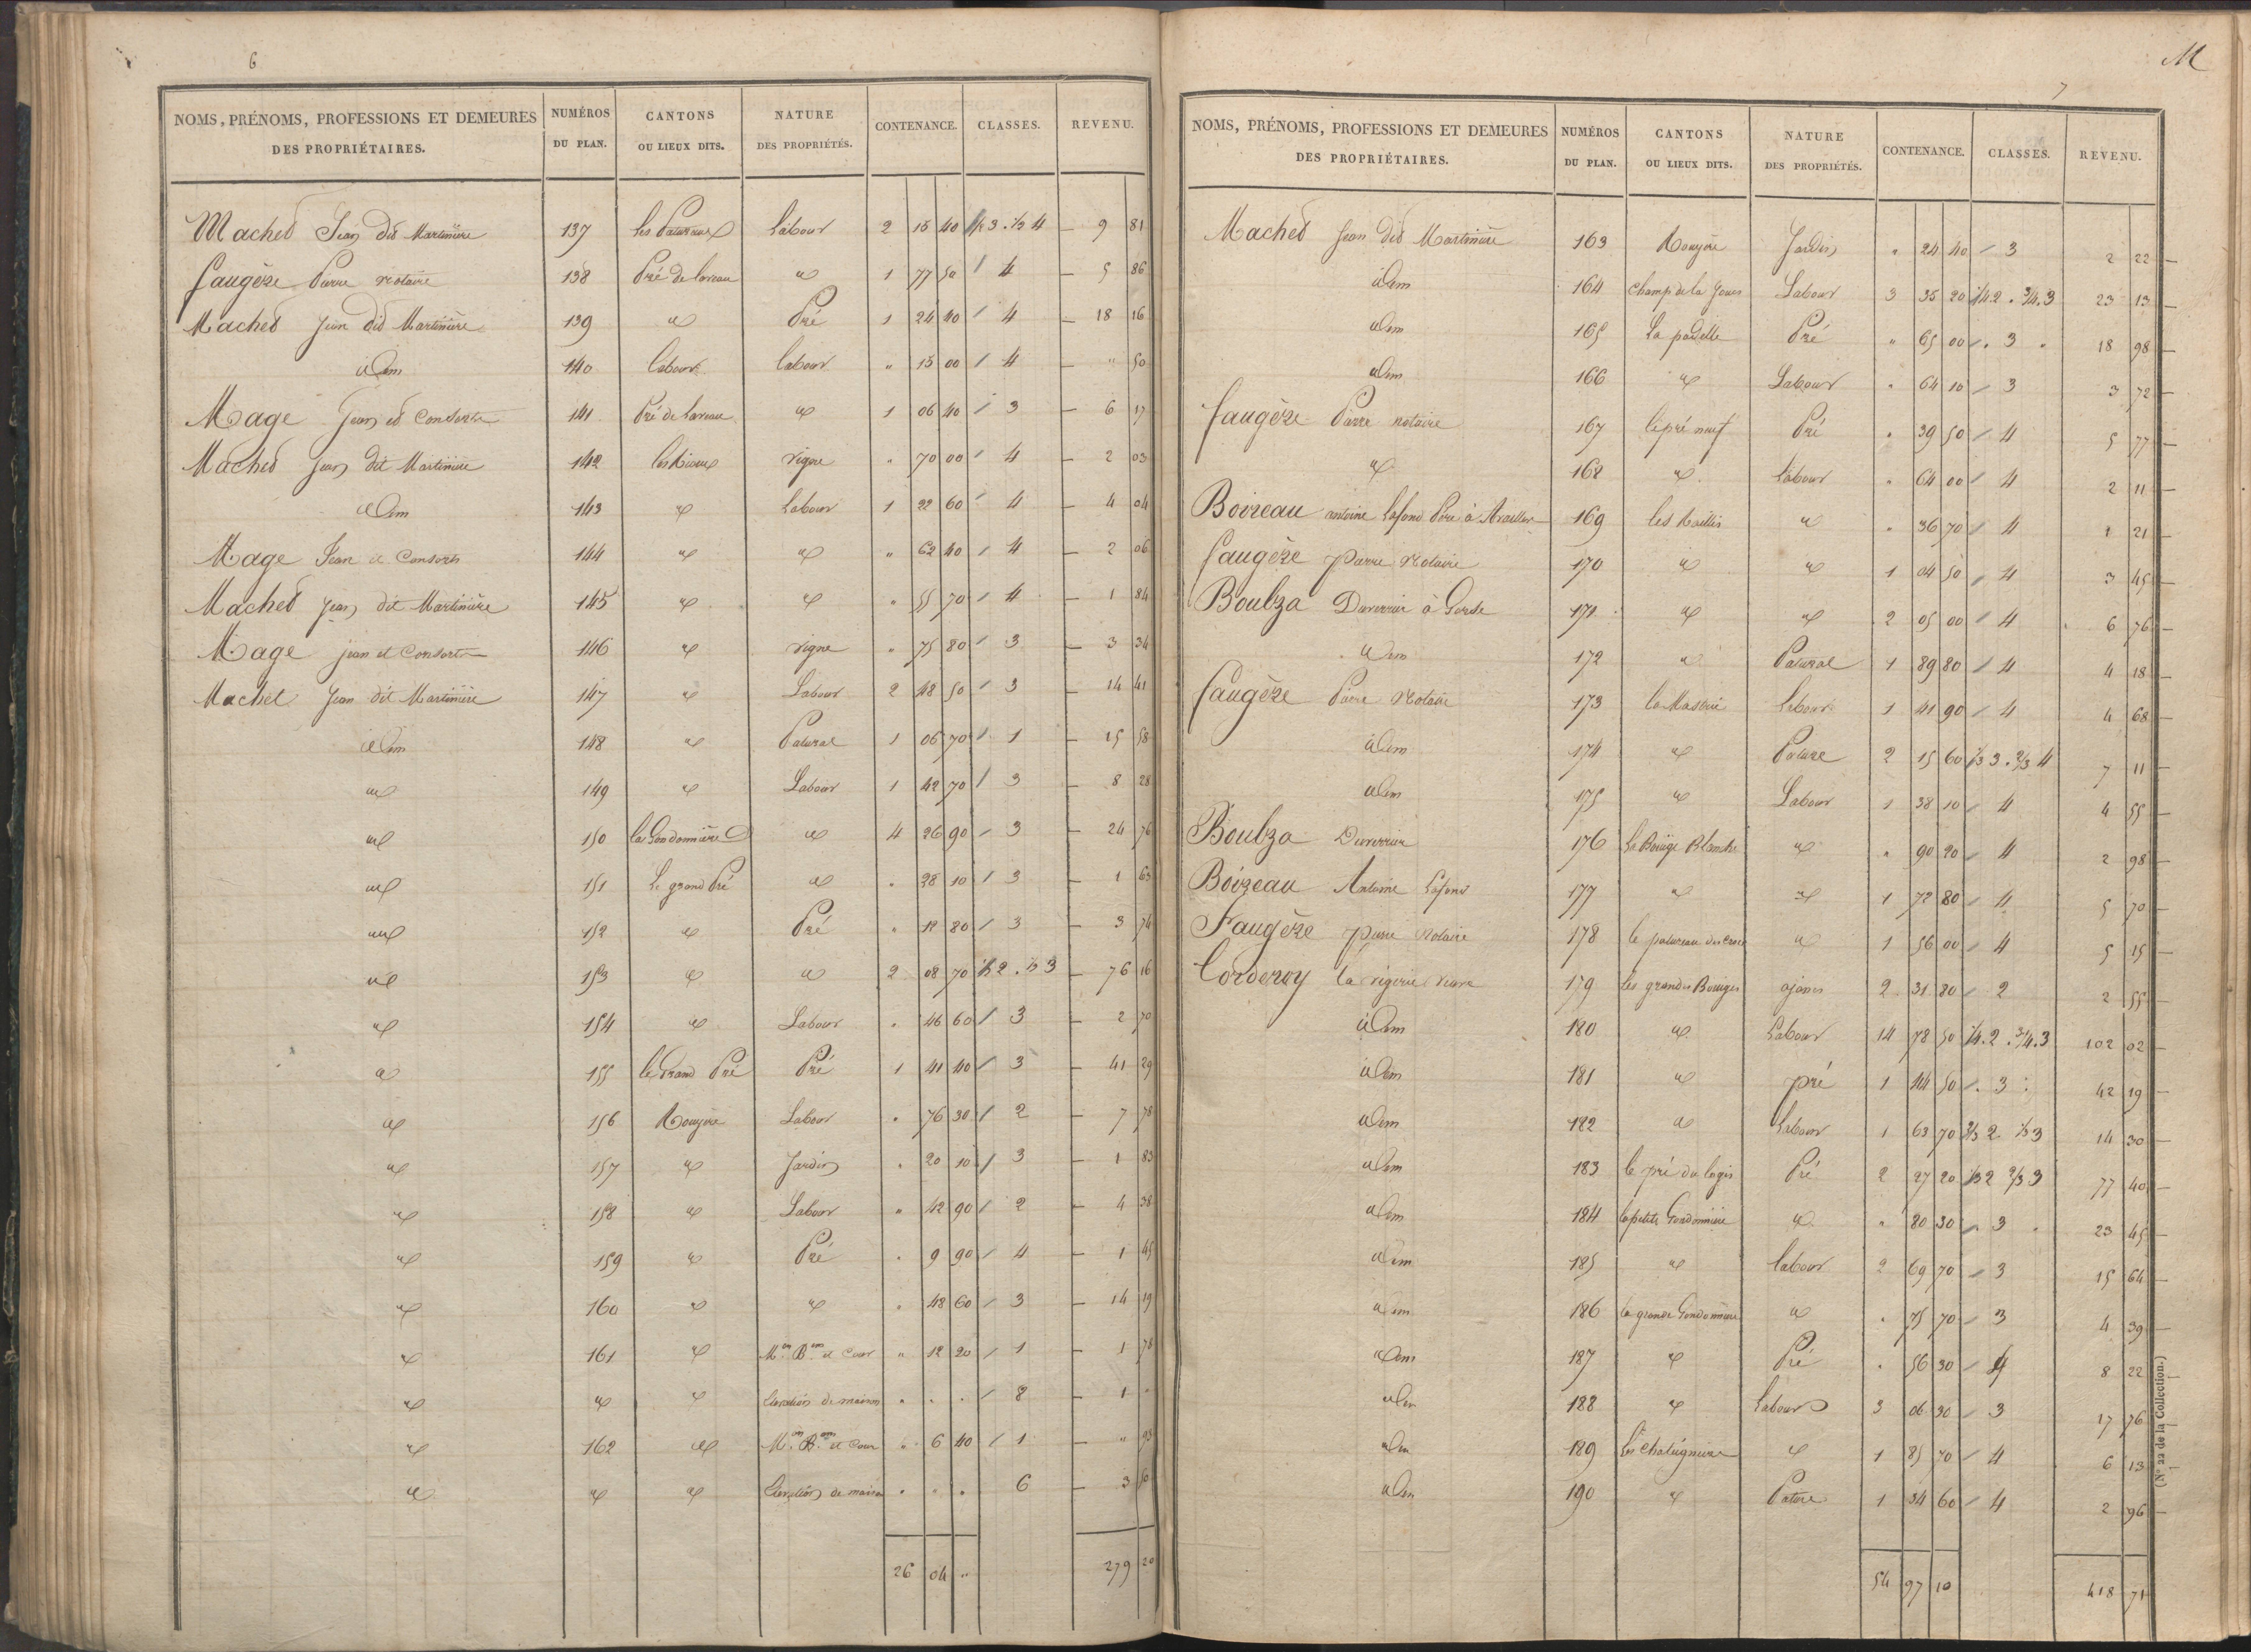 6
NOMS, PRÉNOMS, PROFESSIONS ET DEMEURES DES PROPRIÉTAIRES. NUMÉROS DU PLAN. CANTONS OU LIEUX DITS. NATURE DES PROPRIÉTÉS. CONTENANCE. CLASSES. REVENU.
Machet Jean dit Martinière 137 les Patureaux Labour 2 15 40 1/2 3. 1/2 4 9 81
faugère Pierre Notaire 138 Pré de lareau id 1 77 50 4 5 86
Machet Jean dit Martinière 139 id Pré 1 24 40 4 18 16
idem 140 labour labour " 15 00 4 " 50
Mage Jean et Consorts 141 Pré de lareau id 1 06 40 3 6 17
Machet Jean dit Martinière 142 vigne " 70 00 4 2 03
idem 143 id Labour 1 22 60 4 4 04
Mage Jean et Consorts 144 id id " 62 40 4 2 06
Machet Jean dit Martinière 145 id id " 55 70 4 1 84
Mage jean et Consorts 146 id vigne " 75 80 3 3 34
Machet Jean dit Martinière 147 id Labour 2 48 50 3 14 41
idem 148 id Patural 1 06 70 1 15 58
id 149 id Labour 1 42 70 3 8 28
id 150 la Gondonnière id 4 26 90 3 24 76
id 151 Le grand Pré id " 28 10 3 1 63
id 152 id Pré " 12 80 3 3 74
id 153 id id 2 08 70 1/2 2. 1/2 3 76 16
id 154 id Labour " 46 60 3 2 70
id 155 le Grand Pré Pré 1 41 40 3 41 29
id 156 Rouyère Labour " 76 30 2 7 78
id 157 id Jardin " 20 10 3 1 83
id 158 id Labour " 42 90 2 4 38
id 159 id Pré " 9 90 4 1 45
id 160 id id " 48 60 3 14 19
id 161 id Mon Bon et Cour " 12 20 1 1 78
id id id Elevation de maison " " " 8 1 "
id 162 id Mon Bon et Cour " 6 40 1 " 93
id id id Elevation de maison " " " 6 3
26 04 " 279 20
M
7
NOMS, PRÉNOMS, PROFESSIONS ET DEMEURES DES PROPRIÉTAIRES. NUMÉROS DU PLAN. CANTONS OU LIEUX DITS. NATURE DES PROPRIÉTÉS. CONTENANCE. CLASSES. REVENU.
Machet Jean dit Martinière 163 Rouyère Jardin " 24 40 3 2 22
idem 164 Champ de la Labour 3 35 20 1/4 2. 3/4. 3 23 13
idem 165 La padelle Pré " 65 00 3 18 98
idem 166 id Labour " 64 10 3 3 72
faugère Pierre notaire 167 le pré neuf Pré " 39 50 4 5 77
id 168 id labour " 64 00 4 2 11
Boireau antoine Lafond Père à 169 les id " 36 70 4 1 21
faugère pierre Notaire 170 id id 1 04 50 4 3 45
Boulza Duverrier à 171 id id 2 05 00 4 6 76
idem 172 id Patural 1 89 80 4 4 18
faugère Pierre Notaire 173 Labour 1 41 90 4 4 68
idem 174 id Pature 2 15 60 1/3 3. 2/3 4 7 11
idem 175 id Labour 1 38 10 4 4 55
Boulza Duverrier 176 La Bouige Blanche id " 90 20 4 2 98
Boireau Antoine Lafond 177 id id 1 72 80 4 5 70
Faugère pierre Notaire 178 le patureau du id 1 56 00 4 5 15
Corderoy la vigerie veuve 179 les grandes Bouiges ajoncs 2 31 80 2 2 55
idem 180 id Labour 14 78 50 1/4. 2. 3/4. 3 102 02
idem 181 id pré 1 44 50 3 42 19
idem 182 id Labour 1 63 70 2/3 2 1/3 3 14 30
idem 183 le pré du logis Pré 2 27 20 1/3 2 2/3 3 77 40
idem 184 la petite Gondonnière id " 80 30 3 23 45
idem 185 id labour 2 69 70 3 15 64
idem 186 la grande Gondonnière id " 75 70 3 4 39
idem 187 id Pré " 56 30 4 8 22
idem 188 id Labour 3 06 30 3 17 76
idem 189 id 1 85 70 4 6 13
idem 190 id Pature 1 34 60 4 2 96
54 97 10 418 71
(N° 22 de la Collection.)